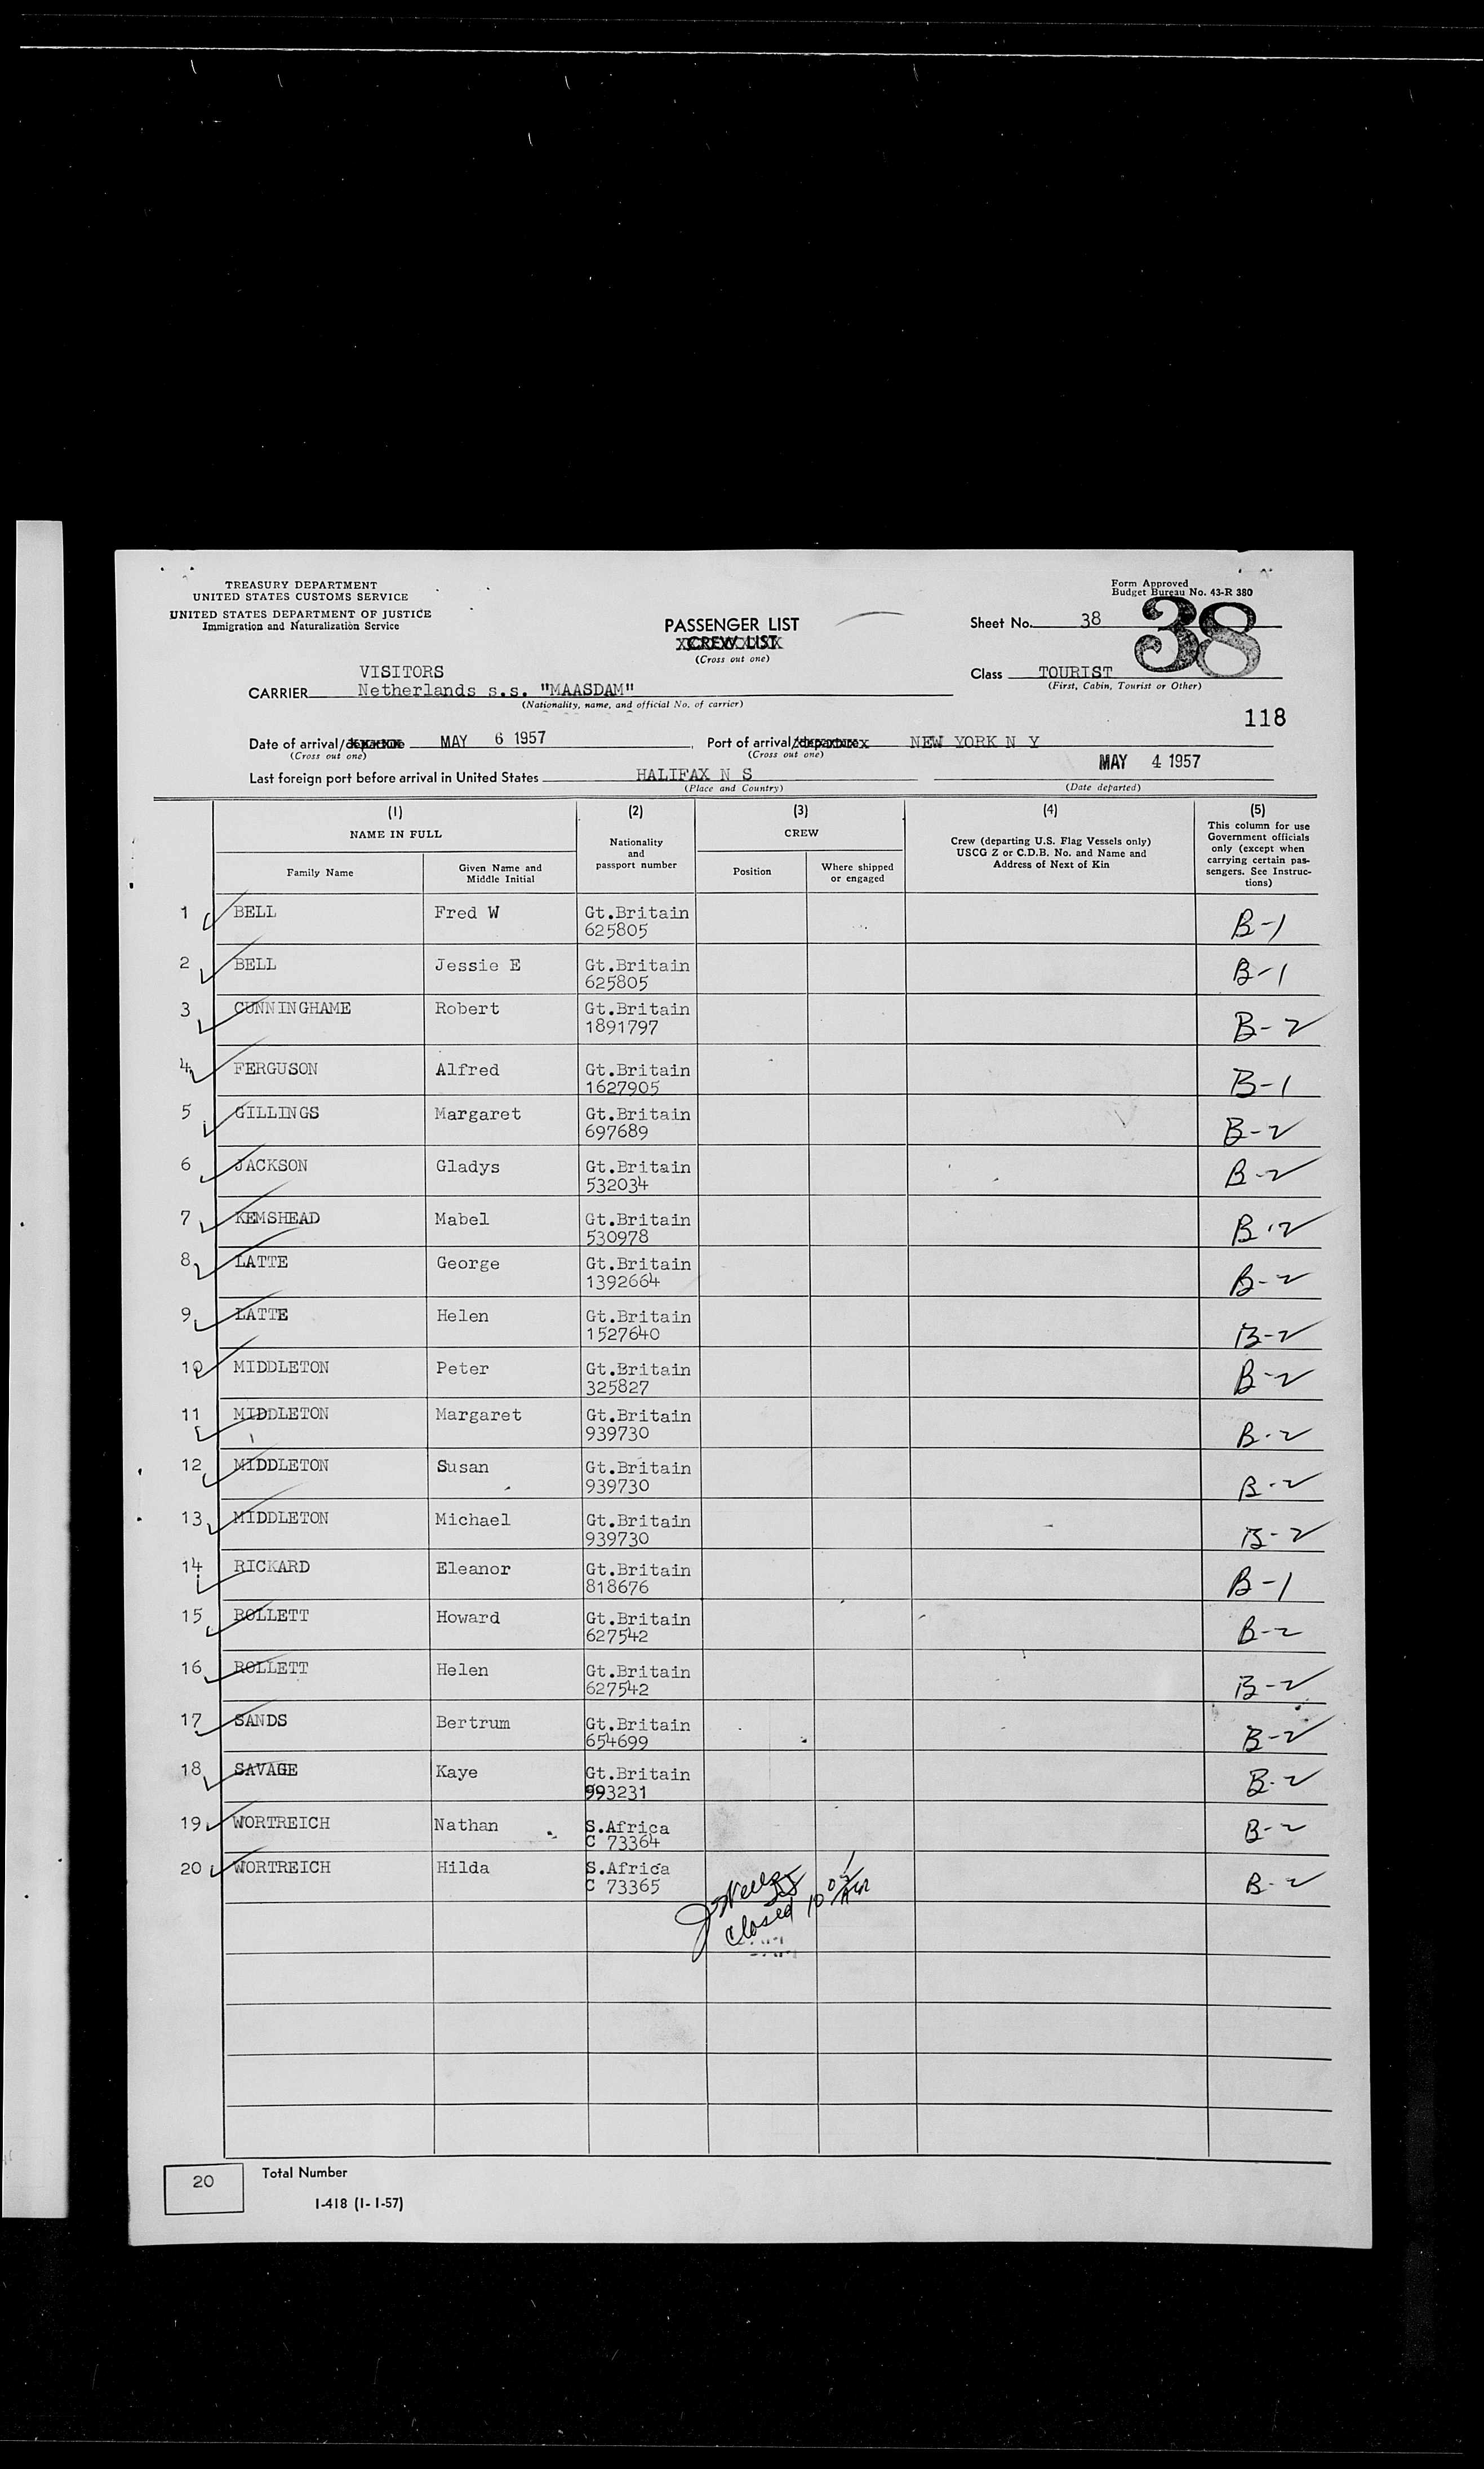 TREASURY DEPARTMENT
UNITED STATES CUSTOMS SERVICE
UNITED STATES DEPARTMENT OF JUSTICE
Immigration and Naturalization Service
Form Approved
Budget Bureau No. 43-R 380
PASSENGER LIST
CREW LIST
(Cross out one)
Sheet No. 38
38
VISITORS
CARRIER Netherlands s.s. "MAASDAM"
(Nationality, name, and official No. of carrier)
Class TOURIST
(First, Cabin, Tourist or Other)
118
Date of arrival/departure MAY 6 1957, Port of arrival/departure NEW YORK N Y
(Cross out one) (Cross out one)
Last foreign port before arrival in United States HALIFAX N S MAY 4 1957
(Place and Country) (Date departed)
(1) (2) (3) (4) (5)
NAME IN FULL
Family Name
Given Name and
Middle Initial
Nationality
and
passport number
CREW
Position
Where shipped
or engaged
Crew (departing U.S. Flag Vessels only)
USCG Z or C.D.B. No. and Name and
Address of Next of Kin
This column for use
Government officials
only (except when
carrying certain pas-
sengers. See Instruc-
tions)
1 BELL Fred W Gt.Britain B-1
625805
2 BELL Jessie E Gt.Britain B-1
625805
3 CUNNINGHAME Robert Gt.Britain B-2
1891797
4 FERGUSON Alfred Gt.Britain B-1
1627905
5 GILLINGS Margaret Gt.Britain B-2
697689
6 JACKSON Gladys Gt.Britain B-2
532034
7 KEMSHEAD Mabel Gt.Britain B-2
530978
8 LATTE George Gt.Britain B-2
1392664
9 LATTE Helen Gt.Britain B-2
1527640
10 MIDDLETON Peter Gt.Britain B-2
325827
11 MIDDLETON Margaret Gt.Britain B-2
939730
12 MIDDLETON Susan Gt.Britain B-2
939730
13 MIDDLETON Michael Gt.Britain B-2
939730
14 RICKARD Eleanor Gt.Britain B-1
818676
15 ROLLETT Howard Gt.Britain B-2
627542
16 ROLLETT Helen Gt.Britain B-2
627542
17 SANDS Bertrum Gt.Britain B-2
654699
18 SAVAGE Kaye Gt.Britain B-2
993231
19 WORTREICH Nathan S.Africa B-2
C 73364
20 WORTREICH Hilda S.Africa B-2
C 73365
closed 10
20 Total Number
I-418 (1-1-57)